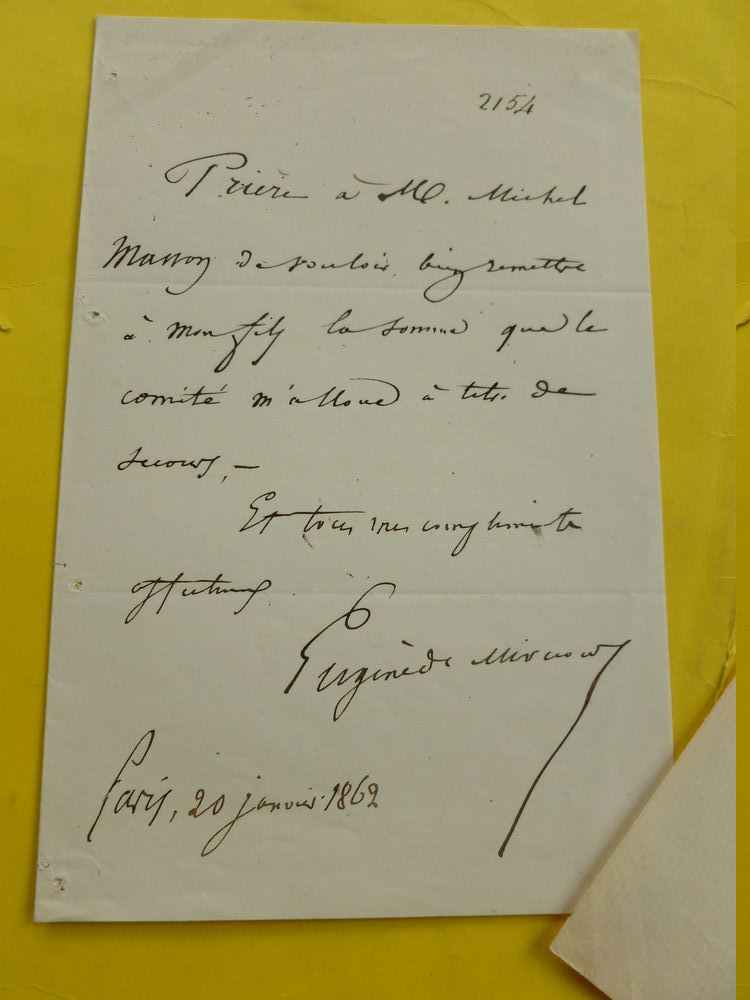 2154
Prière à M. Michel
Masson de vouloir bien remettre
à mon fils la somme que le
comité m'alloue à titre de
secours, —
Et tous mes compliments
affectueux
Eugène de Mirecourt
Paris, 20 janvier 1862